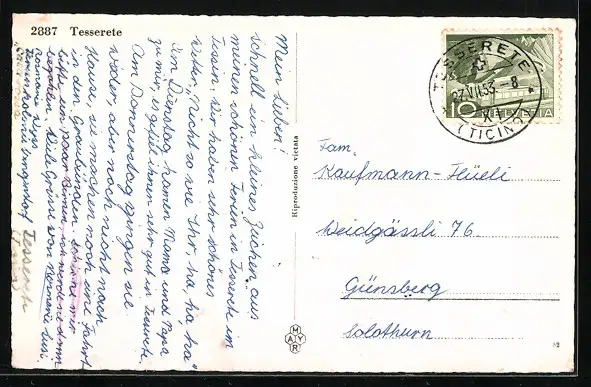 2887 Tesserete
Mein Lieben!
schnell ein kleines Zeichen aus
meinen schönen Ferien in Tesserete im
Tessin. Wir haben sehr schönes
Wetter. Nicht so wie Ihr, ha, ha ha"
Am Dienstag kamen Mama und Papa
zu mir, es gefällt Ihnen sehr gut in Tesserete.
Am Donnerstag gingen sie
wieder, aber noch nicht nach
Hause, sie machen noch eine Fahrt
in den Graubünden.
bitte ein paar
Viele Grüsse von
Tesserete
Riproduzione vietata
MAYR
TESSERETE
27.VII.53.-8
(TICINO)
10 HELVETIA
Fam.
Kaufmann-Flüeli
Weidgässli 76
Günsberg
Solothurn